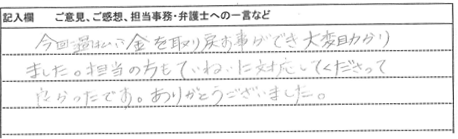 記入欄 ご意見、ご感想、担当事務・弁護士への一言など
今回過払い金を取り戻す事ができ大変助かり
ました。担当の方もていねいに対応してくださって
良かったです。ありがとうございました。